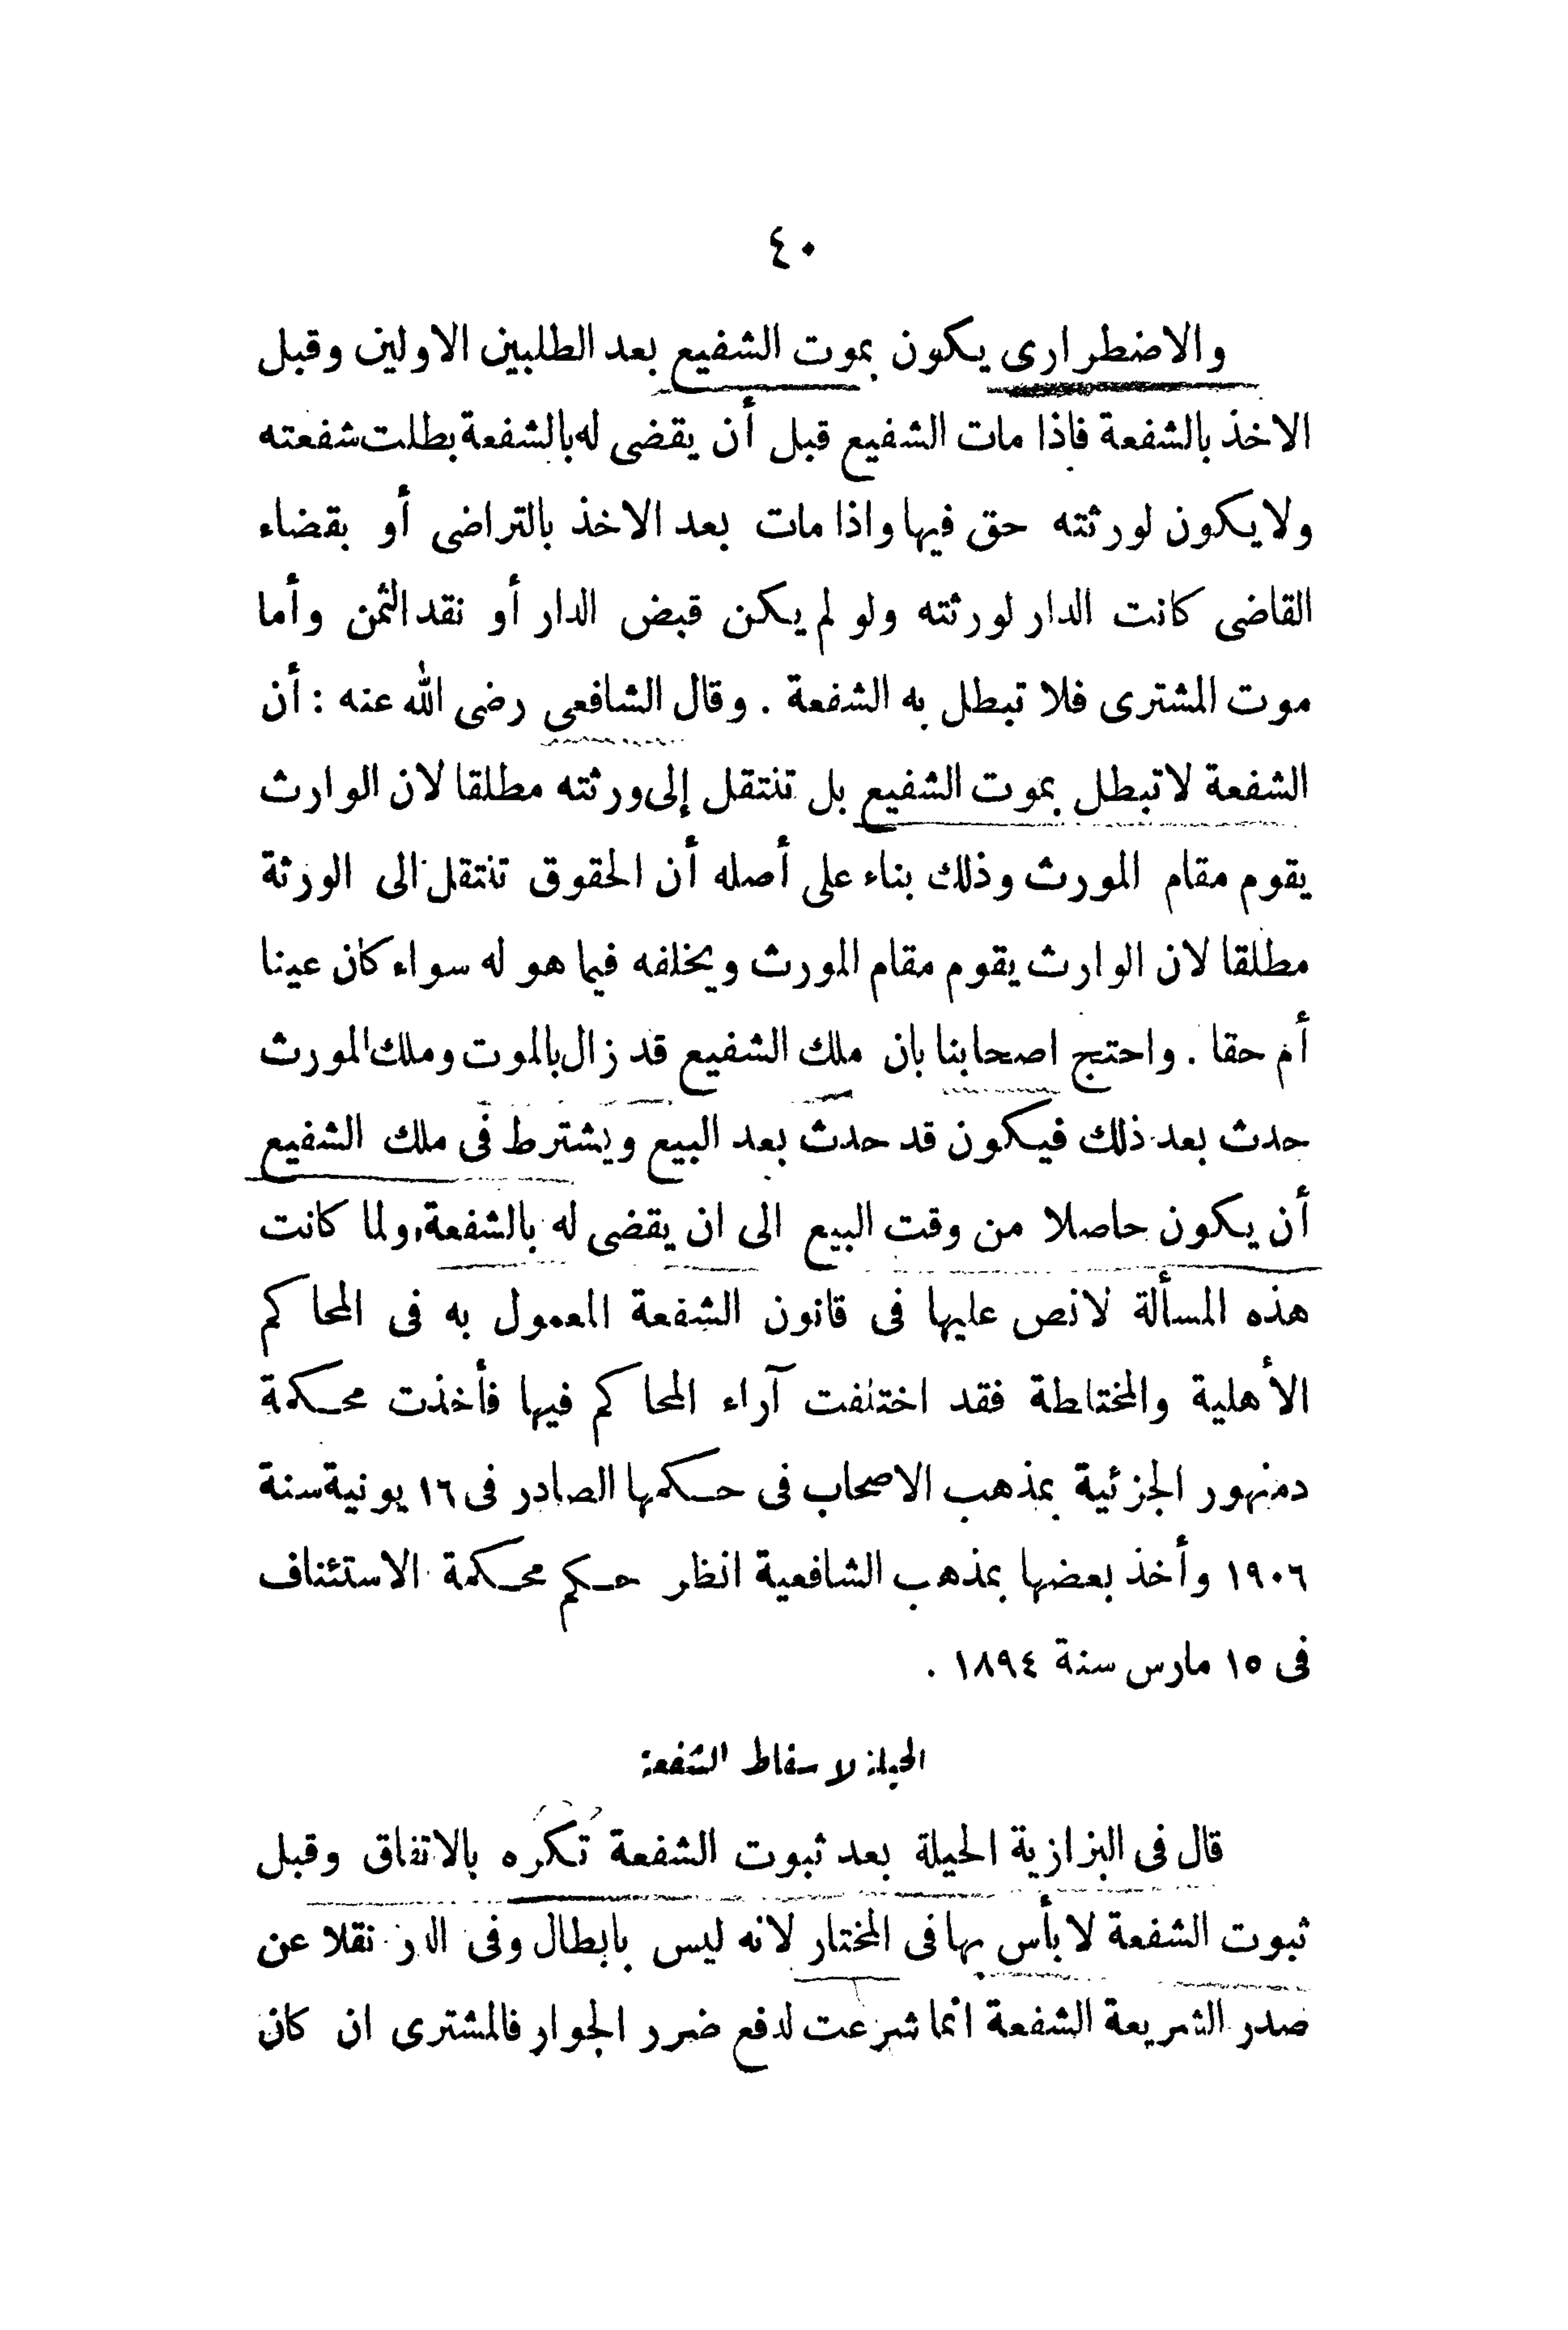 ٤٠
والاضطرارى يكون بموت الشفيع بعد الطلبين الاولين وقبل
الاخذ بالشفعة فاذا مات الشفيع قبل أن يقضى له بالشفعة بطلت شفعته
ولا يكون لورثته حق فيها واذا مات بعد الاخذ بالتراضى أو بقضاء
القاضى كانت الدار لورثته ولو لم يكن قبض الدار أو نقد الثمن وأما
موت المشترى فلا تبطل به الشفعة . وقال الشافعى رضى الله عنه : أن
الشفعة لا تبطل بموت الشفيع بل تنتقل إلى ورثته مطلقا لان الوارث
يقوم مقام المورث وذلك بناء على أصله أن الحقوق تنتقل الى الورثة
مطلقا لان الوارث يقوم مقام المورث ويخلفه فيما هو له سواء كان عينا
أم حقا . واحتج اصحابنا بان ملك الشفيع قد زال بالموت وملك المورث
حدث بعد ذلك فيكون قد حدث بعد البيع ويشترط فى ملك الشفيع
أن يكون حاصلا من وقت البيع الى ان يقضى له بالشفعة، ولما كانت
هذه المسألة لانص عليها فى قانون الشفعة المعمول به فى المحاكم
الأهلية والمختلطة فقد اختلفت آراء المحاكم فيها فأخذت محكمة
دمنهور الجزئية بمذهب الاصحاب فى حكمها الصادر فى ١٦ يونية سنة
١٩٠٦ وأخذ بعضها بمذهب الشافعية انظر حكم محكمة الاستئناف
فى ١٥ مارس سنة ١٨٩٤ .
الحيلة لاسقاط الشفعة
قال فى البزازية الحيلة بعد ثبوت الشفعة تكره بالاتفاق وقبل
ثبوت الشفعة لا بأس بها فى المختار لانه ليس بابطال وفى الدر نقلا عن
صدر الشريعة الشفعة انما شرعت لدفع ضرر الجوار فالمشترى ان كان